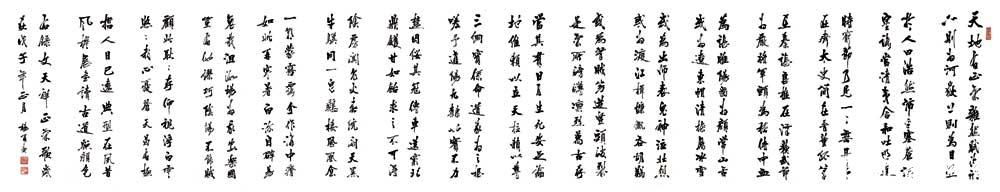 天地有正氣雜然賦流形
下則為河嶽上則為日星
於人曰浩然沛乎塞蒼冥
皇路當清夷含和吐明庭
時窮節乃見一一垂丹青
在齊太史簡在晉董狐筆
在秦張良椎在漢蘇武節
為嚴將軍頭為嵇侍中血
為張睢陽齒為顏常山舌
或為遼東帽清操厲冰雪
或為出師表鬼神泣壯烈
或為渡江楫慷慨吞胡羯
或為擊賊笏逆豎頭破裂
是氣所磅礴凜烈萬古存
當其貫日月生死安足論
地維賴以立天柱賴以尊
三綱實係命道義為之根
嗟予遘陽九隸也實不力
楚囚纓其冠傳車送窮北
鼎鑊甘如飴求之不可得
陰房闃鬼火春院閟天黑
牛驥同一皂雞棲鳳凰食
一朝蒙霧露分作溝中瘠
如此再寒暑百沴自辟易
哀哉沮洳場為我安樂國
豈有他繆巧陰陽不能賊
顧此耿耿存仰視浮雲白
悠悠我心憂蒼天曷有極
哲人日已遠典型在夙昔
風簷展書讀古道照顏色
右錄文天祥正氣歌歲
在戊子年正月